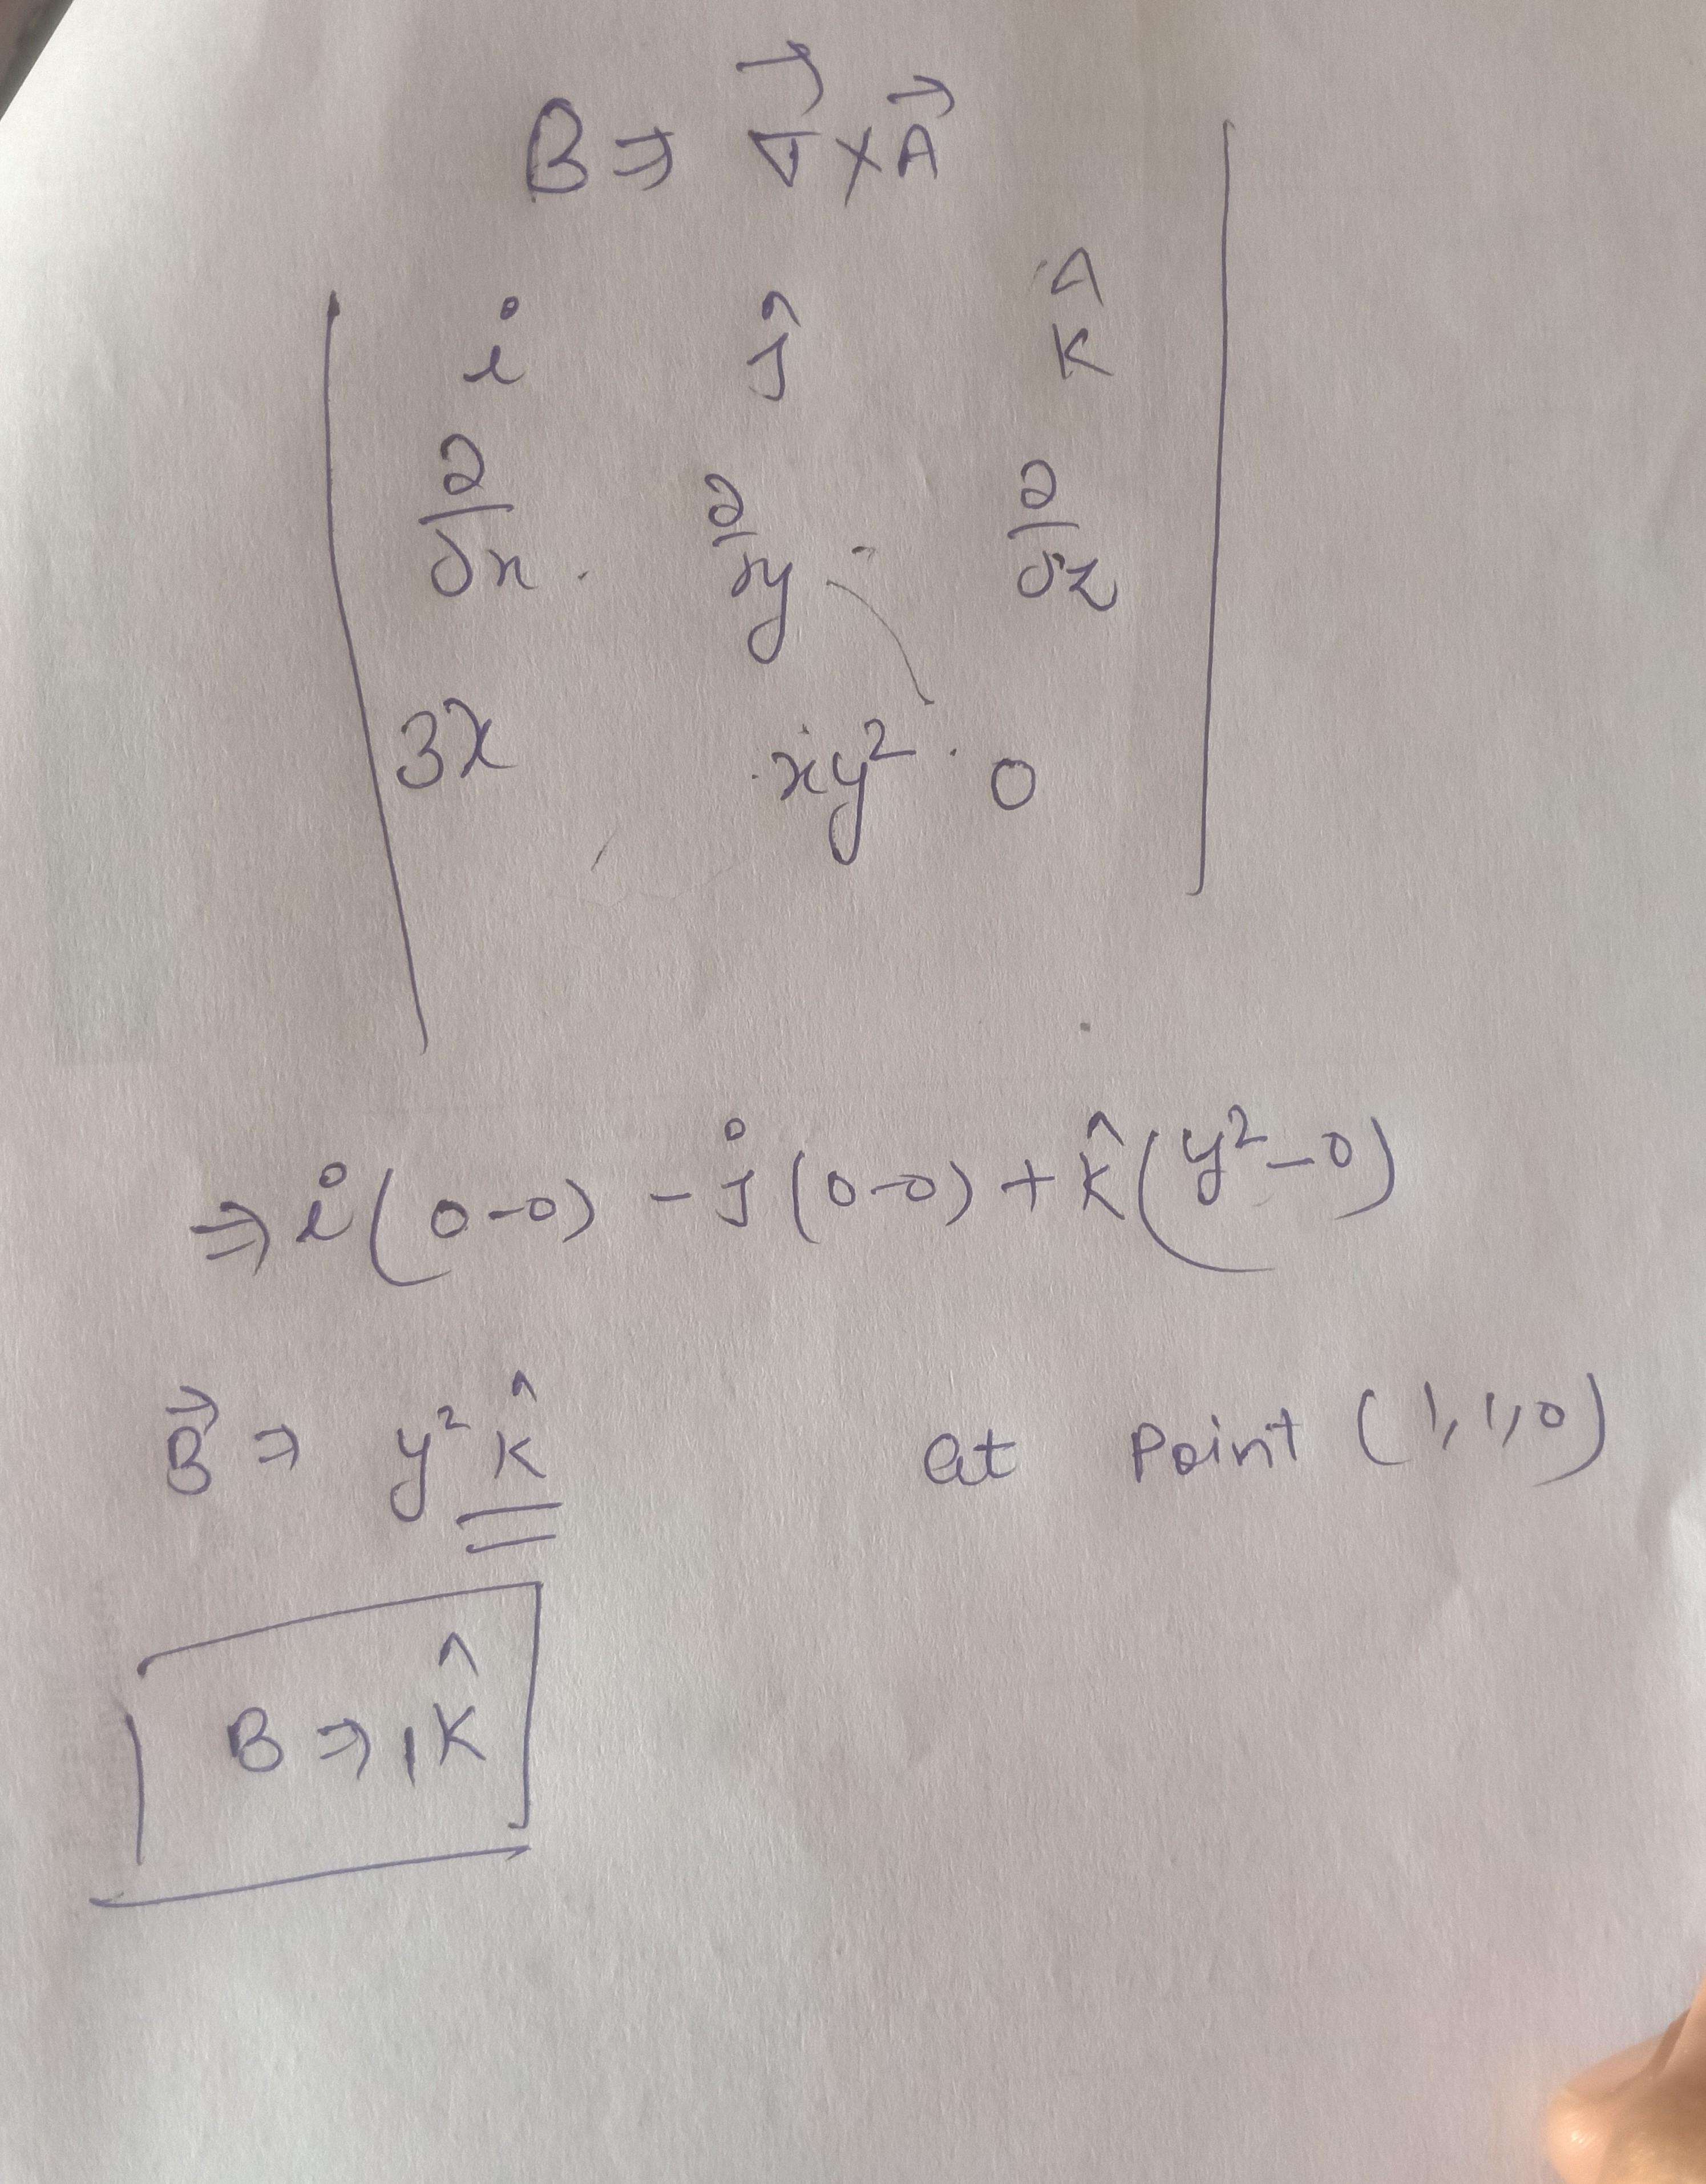 B ⇒ ∇⃗ × A⃗
i ĵ k̂
∂/∂x ∂/∂y ∂/∂z
3x xy² 0
⇒ i(0-0) - j(0-0) + k̂(y²-0)
B⃗ ⇒ y² k̂ at Point (1,1,0)
B ⇒ 1k̂